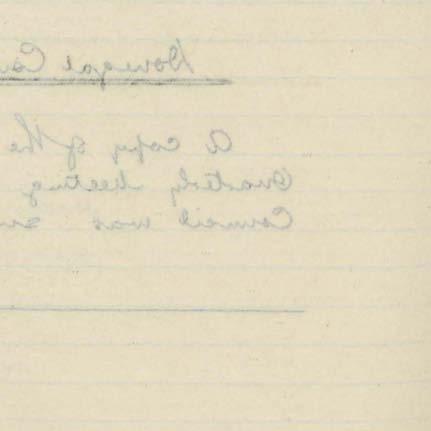 Donegal
A copy of the
Quarterly Meeting
Council was